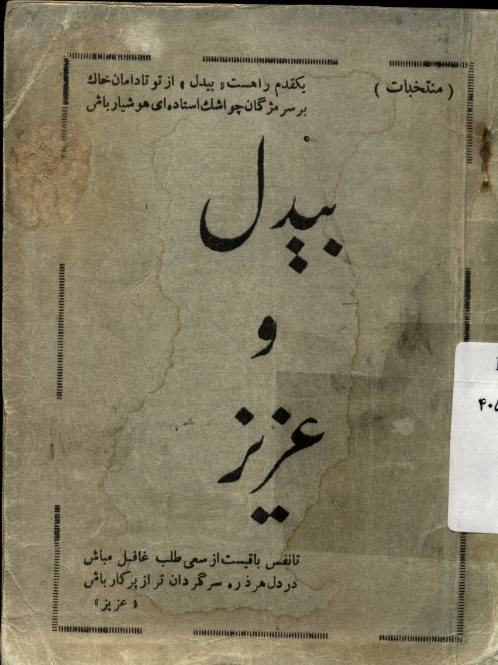 (منتخبات)
یکقدم راهست «بیدل» از تو تا دامان خاك
بر سر مژگان چو اشك استاده‌ای هوشیار باش
بیدل
و
عزیز
تا نفس باقیست از سعی طلب غافل مباش
در دل هر ذره سرگردان تر از پرکار باش
«عزیز»